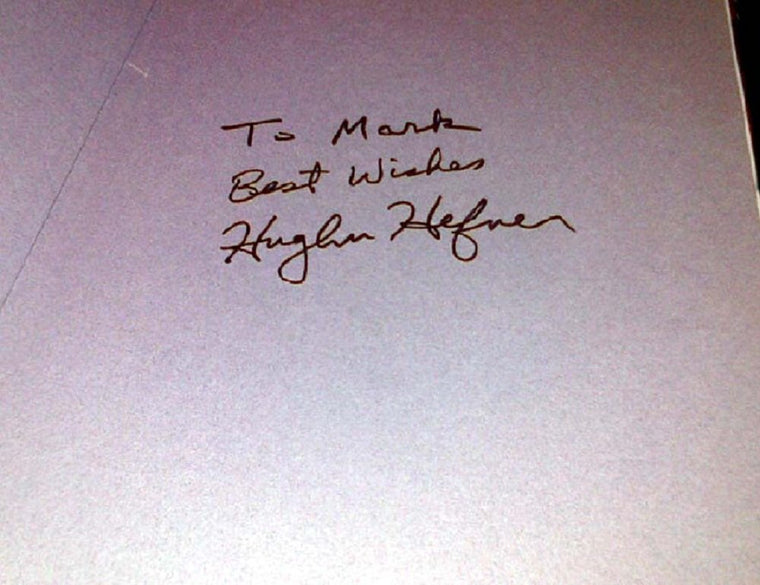 To Mark
Best Wishes
Hugh M Hefner